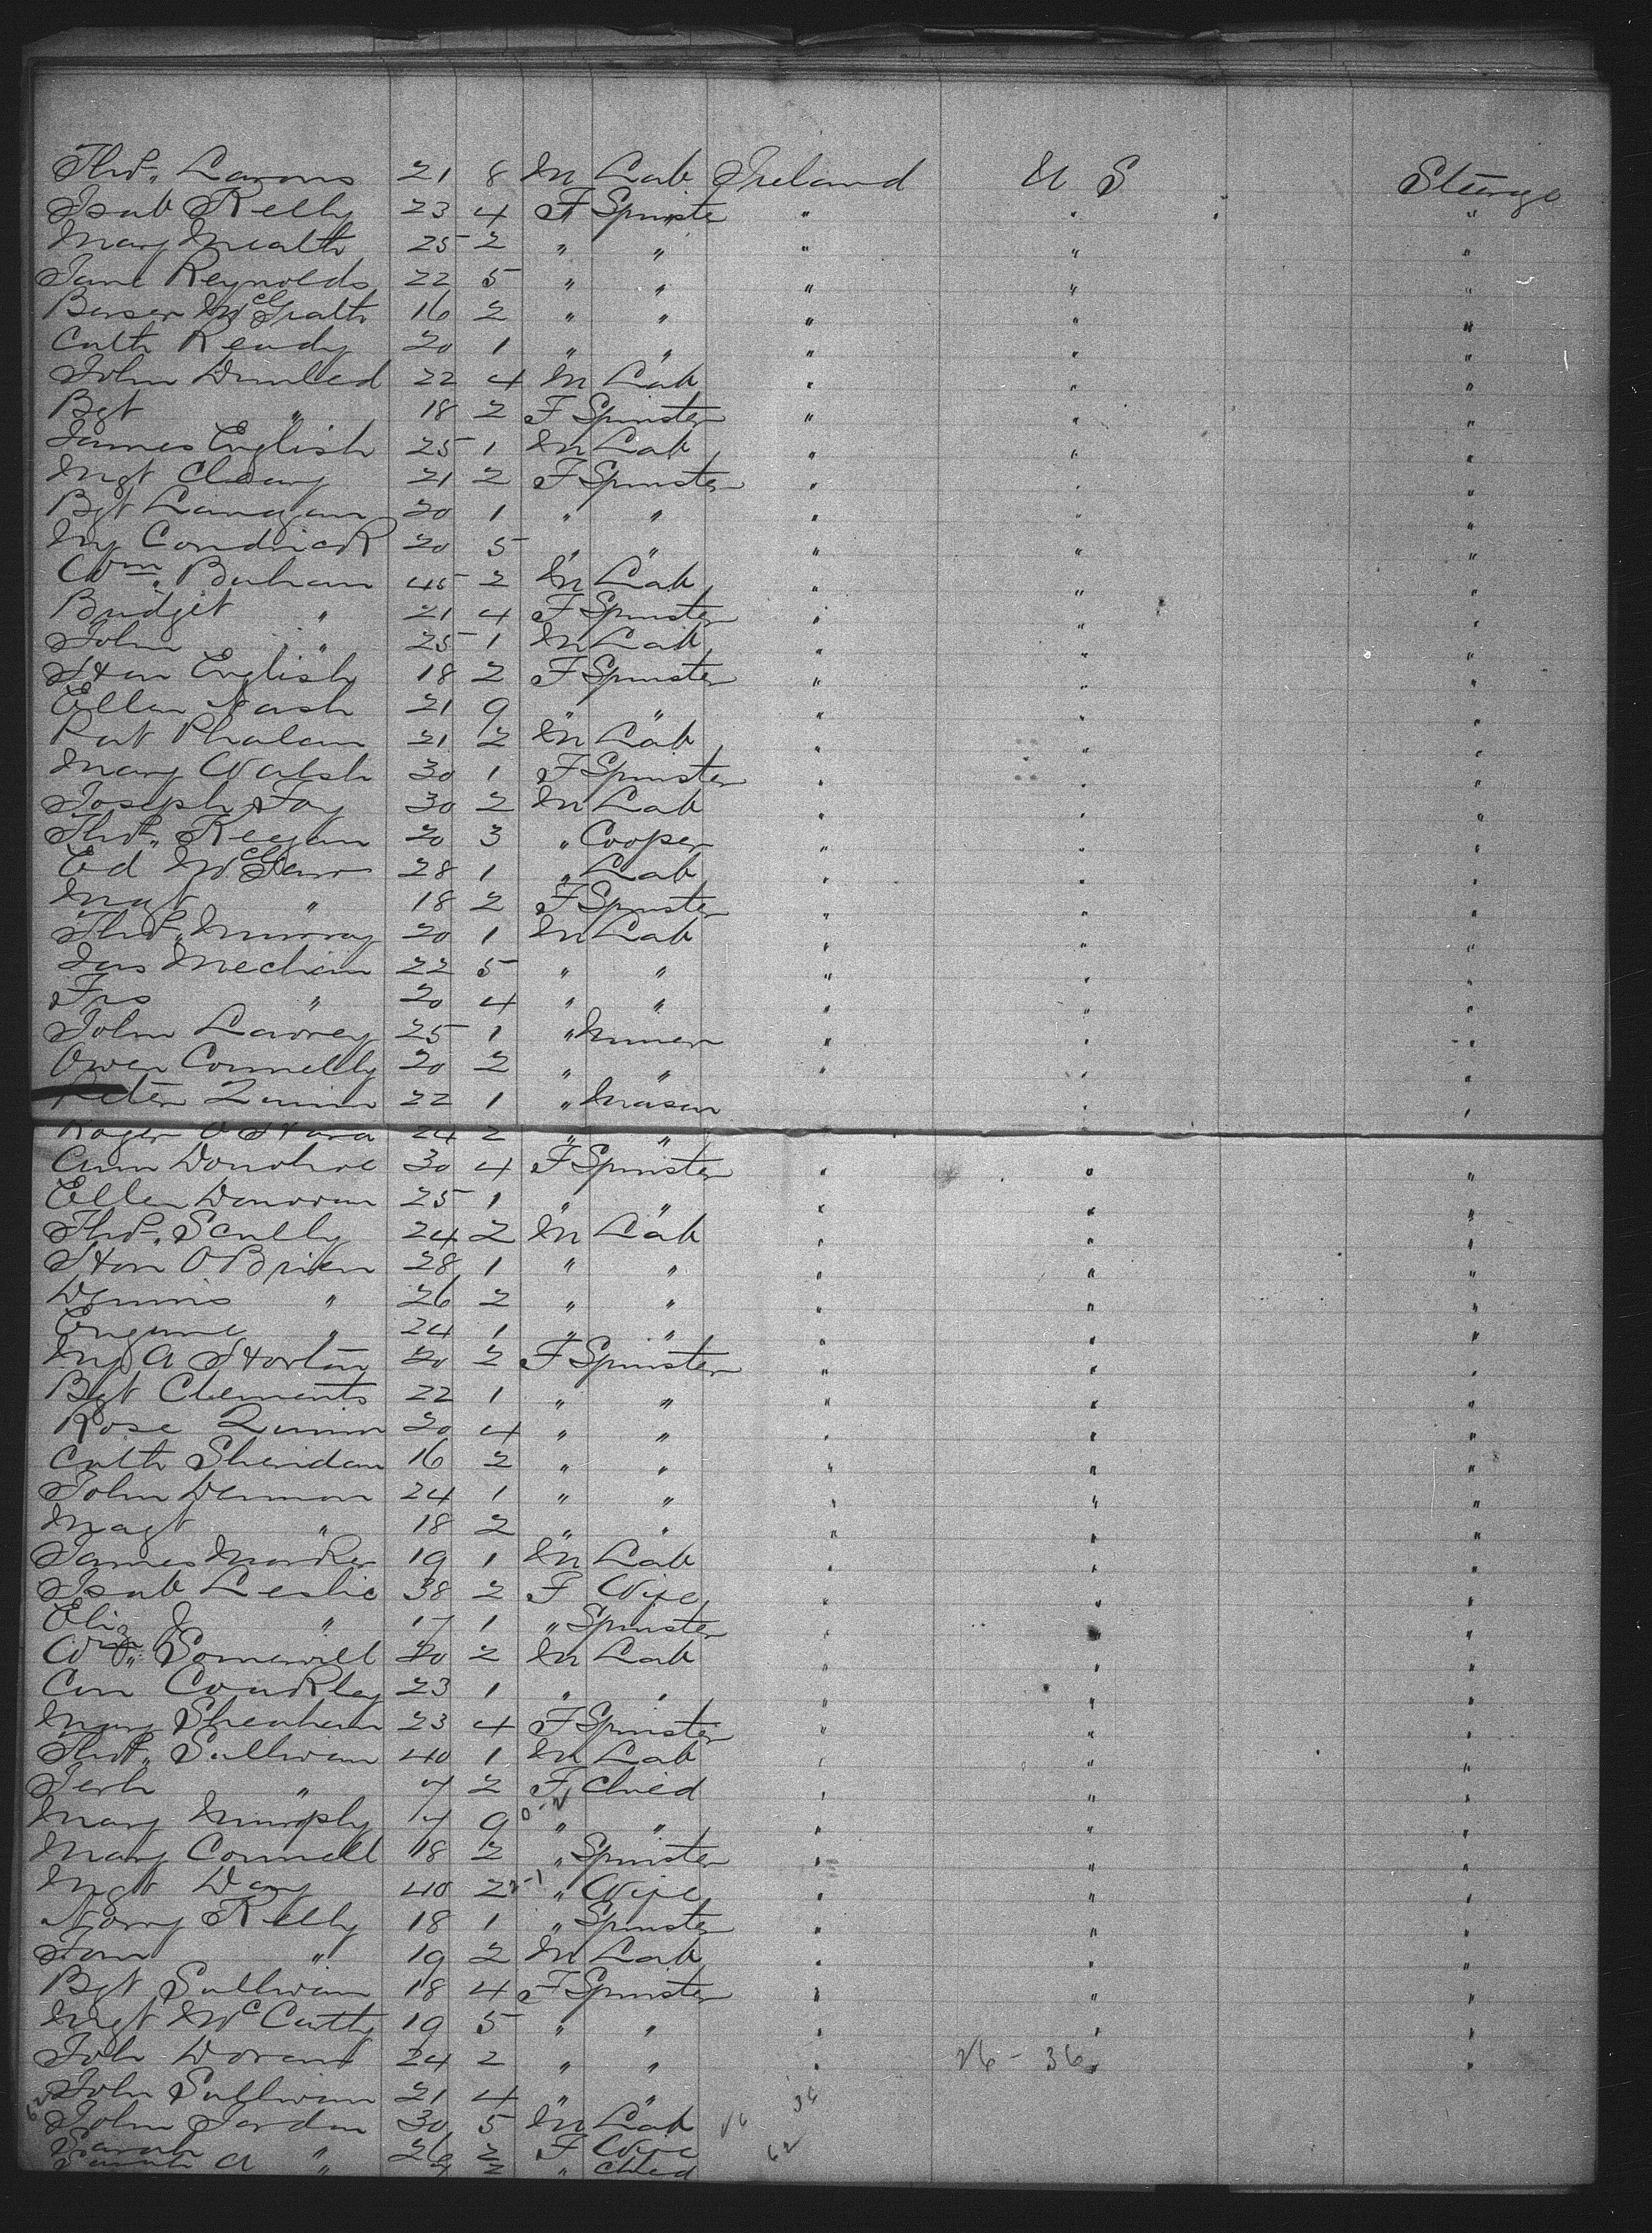 Thos. Larons 21 8 M Lab Ireland U S Steerage
Isab Kelly 23 4 F Spinster " " "
Mary Mealth 25 2 " " " " "
Jane Reynolds 22 5 " " " " "
McGrath 16 2 " " " " "
Cath Ready 20 1 " " " " "
John 22 4 M Lab " " "
Bgt " 18 2 F Spinster " " "
James English 25 1 M Lab " " "
Mgt Cleary 21 2 F Spinster " " "
Bgt Lanagan 20 1 " " " " "
My Condrick 20 5 " " " " "
Wm. 45 2 M Lab " " "
Bridget " 21 4 F Spinster " " "
John " 25 1 M Lab " " "
Han English 18 2 F Spinster " " "
Ellen Nash 21 9 " " " " "
Pat Phalan 21 2 M Lab " " "
Mary Walsh 30 1 F Spinster " " "
Joseph Foy 30 2 M Lab " " "
Thos. Keegan 20 3 " Cooper " " "
Ed 28 1 " Lab " " "
Magt " 18 2 F Spinster " " "
Thos. Murray 20 1 M Lab " " "
Jas Mechan 22 5 " " " " "
Frs " 20 4 " " " " "
John Lavrey 25 1 " Miner " " "
Owen Connelly 20 2 " " " " "
Peter Quinn 22 1 " Mason " " "
Roger O'Hara 24 2 " "
Ann Donohoe 30 4 F Spinster " " "
Ellen Donovan 25 1 " " " " "
Thos. Scully 24 2 M Lab " " "
Han O'Brien 28 1 " " " " "
Dennis " 26 2 " " " " "
Eugene " 24 1 " " " " "
My A Horton 20 2 F Spinster " " "
Bgt Clements 22 1 " " " " "
Rose Quinn 20 4 " " " " "
Cath Sheridan 16 2 " " " " "
John Dennon 24 1 " " " " "
Magt " 18 2 " " " " "
James 19 1 M Lab " " "
Isab Leslie 38 2 F Wife " " "
Eliz J " 17 1 " Spinster " " "
Wm. Somervill 20 2 M Lab " " "
Con Coakley 23 1 " " " " "
Mary Sheahan 23 4 F Spinster " " "
Thos. Sullivan 40 1 M Lab " " "
Jerh " 7 2 F Child " " "
Mary Murphy 7 9 " " " " "
Mary Connell 18 2 " Spinster " " "
Mgt Day 40 2 " Wife " " "
Norry Kelly 18 1 " Spinster " " "
" 19 2 M Lab " " "
Bgt Sullivan 18 4 F Spinster " " "
Mgt McCathy 19 5 " " " " "
Joh Doran 24 2 " " " 26 - 36 "
John Sullivan 21 4 " " 36
62 John Jordan 30 5 M Lab 26
Sarah " 26 2 F Wife 62
Sarah A " 2 " Child